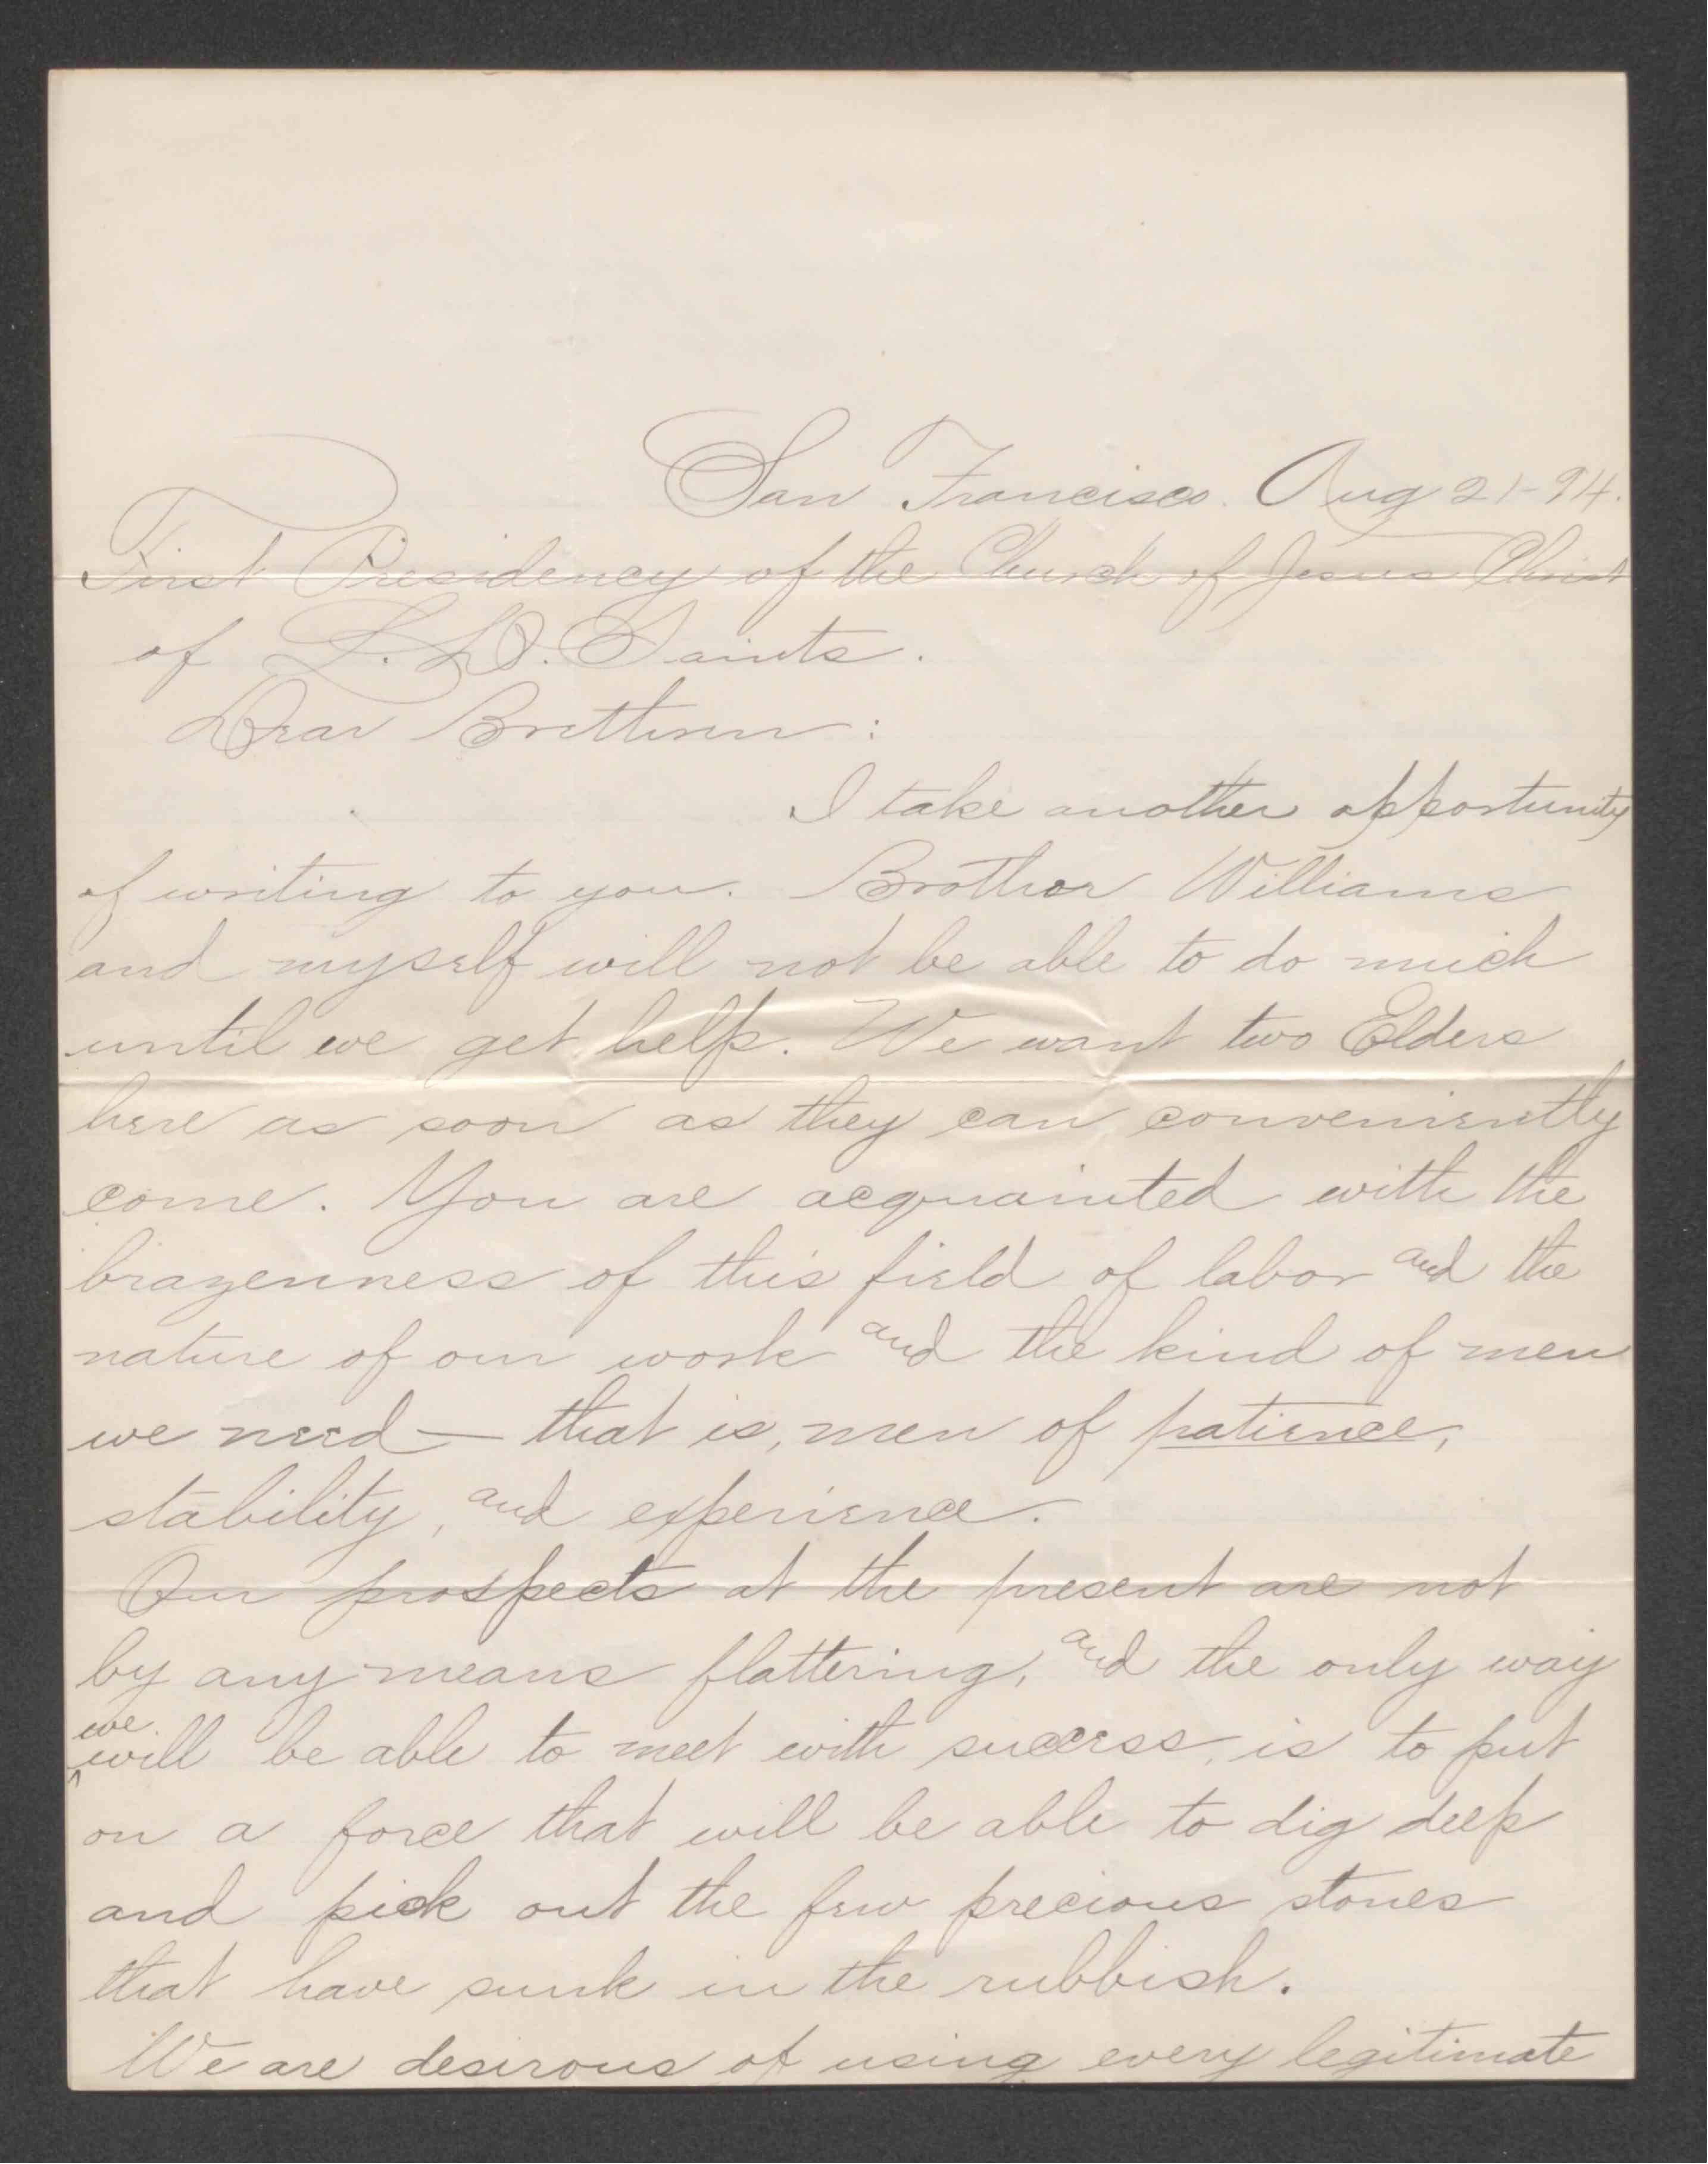 San Francisco. Aug 21-94.
First Presidency of the Church of Jesus Christ
of L. D. Saints.
Dear Brethren:
I take another opportunity
of writing to you. Brother Williams
and myself will not be able to do much
until we get help. We want two Elders
here as soon as they can conveniently
come. You are acquainted with the
brazenness of this field of labor and the
nature of our work and the kind of men
we need — that is, men of patience,
stability, and experience.
Our prospects at the present are not
by any means flattering, and the only way
we
will be able to meet with success, is to put
on a force that will be able to dig deep
and pick out the few precious stones
that have sunk in the rubbish.
We are desirous of using every legitimate